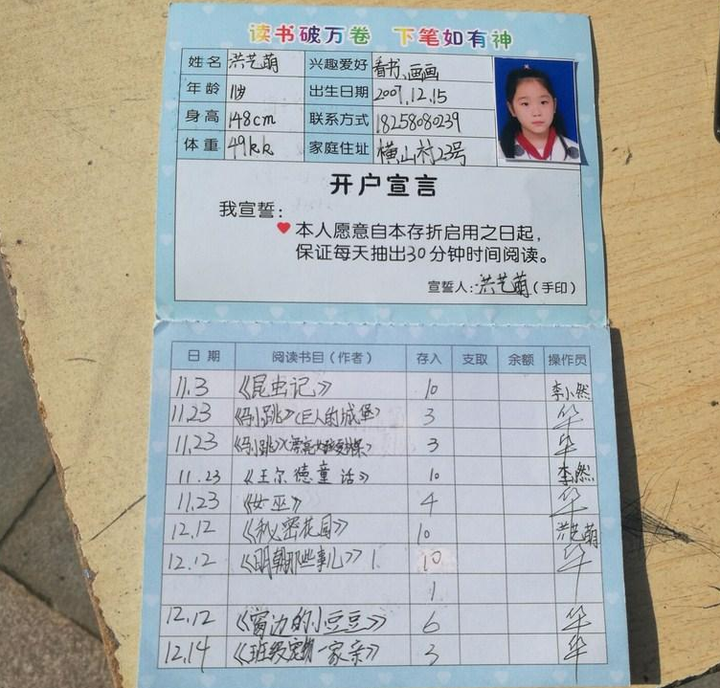 读书破万卷 下笔如有神
姓名 洪艺萌 兴趣爱好 看书、画画
年龄 11岁 出生日期 2007.12.15
身高 148cm 联系方式 18258080239
体重 49kk 家庭住址 横山村23号
开户宣言
我宣誓：
本人愿意自本存折启用之日起，
保证每天抽出30分钟时间阅读。
宣誓人：洪艺萌（手印）
日期 阅读书目（作者） 存入 支取 余额 操作员
11.3 《昆虫记》 10 李小然
11.23 《马小跳》（巨人的城堡） 3 华
11.23 《马小跳》 3 华
11.23 《王尔德童话》 10 李然
11.23 《女巫》 4 华
12.12 《秘密花园》 10 洪艺萌
12.12 《明朝那些事儿》1 10 华
1
12.12 《窗边的小豆豆》 6 华
12.14 《班级宠物一家亲》 3 华